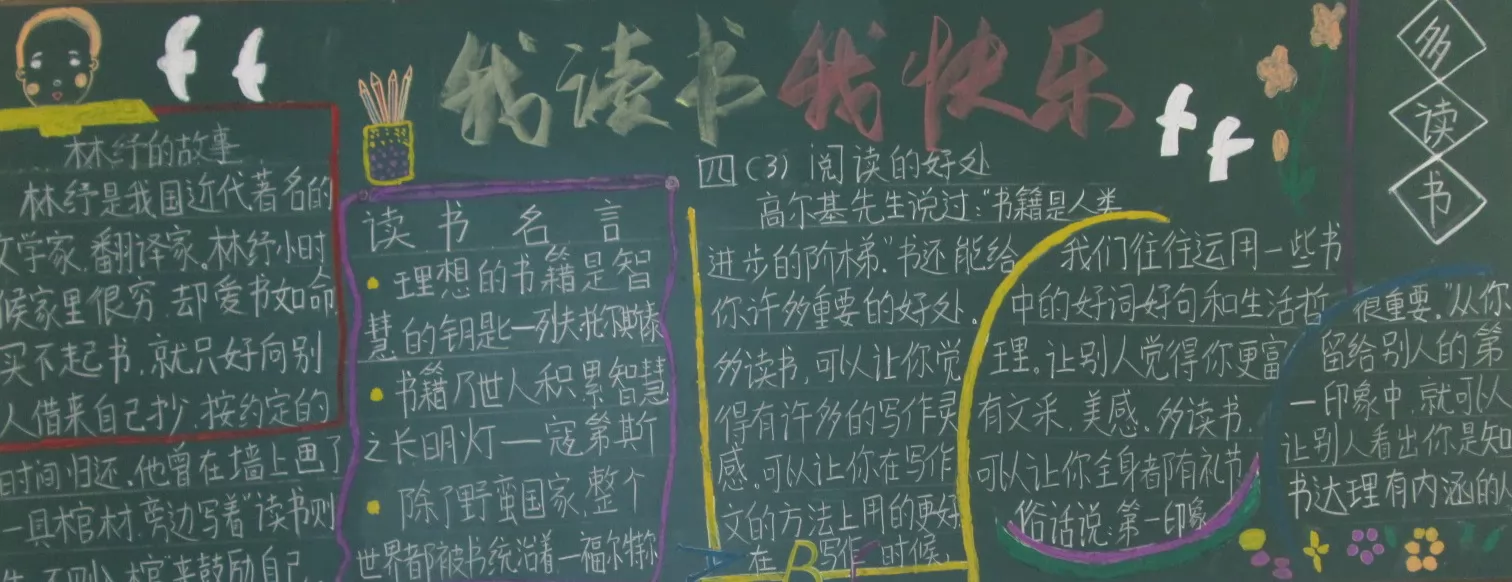 我读书 我快乐
多读书
林纾的故事
林纾是我国近代著名的
文学家.翻译家。林纾小时
候家里很穷.却爱书如命
买不起书,就只好向别
人借来自己抄.按约定的
时间归还.他曾在墙上画了
一具棺材.旁边写着"读书则
生.不则入棺"来鼓励自己
读书名言
理想的书籍是智
慧的钥匙—列夫托尔斯泰
书籍乃世人积累智慧
之长明灯—寇第斯
除了野蛮国家,整个
世界都被书统治着—福尔特尔
四(3) 阅读的好处
高尔基先生说过:"书籍是人类
进步的阶梯"书还能给
你许多重要的好处。
多读书,可以让你觉
得有许多的写作灵
感。可以让你在写作
文的方法上用的更好
在写作时候
我们往往运用一些书
中的好词好句和生活哲
理。让别人觉得你更富
有文采,美感.多读书.
可以让你全身都有礼节
俗话说:第一印象
很重要."从你
留给别人的第
一印象中.就可以
让别人看出你是知
书达理有内涵的人
A B